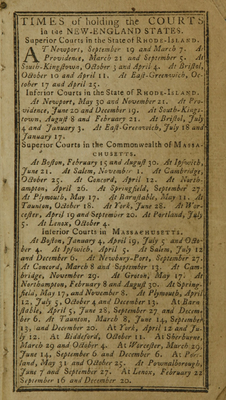 TIMES of holding the COURTS
in the NEW-ENGLAND STATES.
Superior Courts in the State of RHODE-ISLAND.
AT Newport, September 19 and March 7. At
Providence, March 21 and September 5. At
South-Kingstown, October 3 and April 4. At Bristol,
October 10 and April 11. At East-Greenwich, Oc-
tober 17 and April 25.
Inferior Courts in the State of RHODE-ISLAND.
At Newport, May 30 and November 21. At Pro-
vidence, June 20 and December 19. At South-Kings-
town, August 8 and February 21. At Bristol, July
4 and January 3. At East-Greenwich, July 18 and
January 17.
Superior Courts in the Commonwealth of MASSA-
CHUSETTS.
At Boston, February 15 and August 30. At Ipswich,
June 21. At Salem, November 1. At Cambridge,
October 25. At Concord, April 12. At North-
ampton, April 26. At Springfield, September 27.
At Plymouth, May 17. At Barnstable, May 11. At
Taunton, October 18. At York, June 28. At Wor-
cester, April 19 and September 20. At Portland, July
5. At Lenox, October 4.
Inferior Courts in MASSACHUSETTS.
At Boston, January 4, April 19, July 5 and Octo-
ber 4. At Ipswich, April 5. At Salem, July 12
and December 6. At Newbury-Port, September 27.
At Concord, March 8 and September 13. At Cam-
bridge, November 29. At Groton, May 17. At
Northampton, February 8 and August 30. At Spring-
field, May 17, and November 8. At Plymouth, April
12, July 5, October 4 and December 13. At Barn-
stable, April 5, June 28, September 27 and Decem-
ber 6. At Taunton, March 8, June 14, September
13, and December 20. At York, April 12 and Ju-
ly 12. At Biddeford, October 11. At Sherburne,
March 29 and October 4. At Worcester, March 29,
June 14, September 6 and December 6. At Port-
land, May 31 and October 25. At Pownalborough,
June 7 and September 27. At Lenox, February 22
September 16 and December 20.